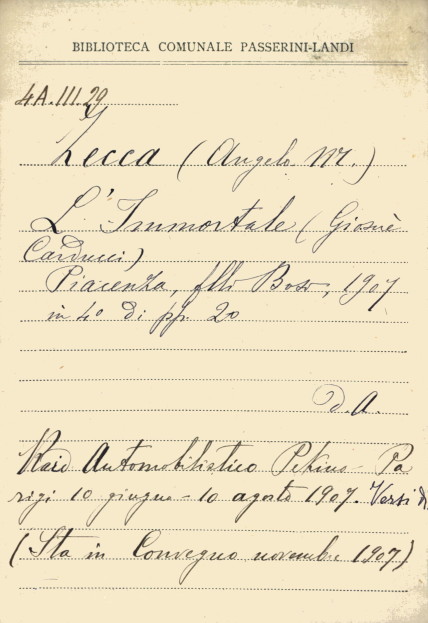 BIBLIOTECA COMUNALE PASSERINI-LANDI
4A.III.29
Zecca (Angelo M.)
L'Immortale (Giosuè
Carducci)
Piacenza, flli Boso, 1907
in 4° di pp. 20
D.A.
Raid Automobilistico Pekino-Pa
rigi 10 giugno - 10 agosto 1907. Versi di
(Sta in Convegno novembre 1907)